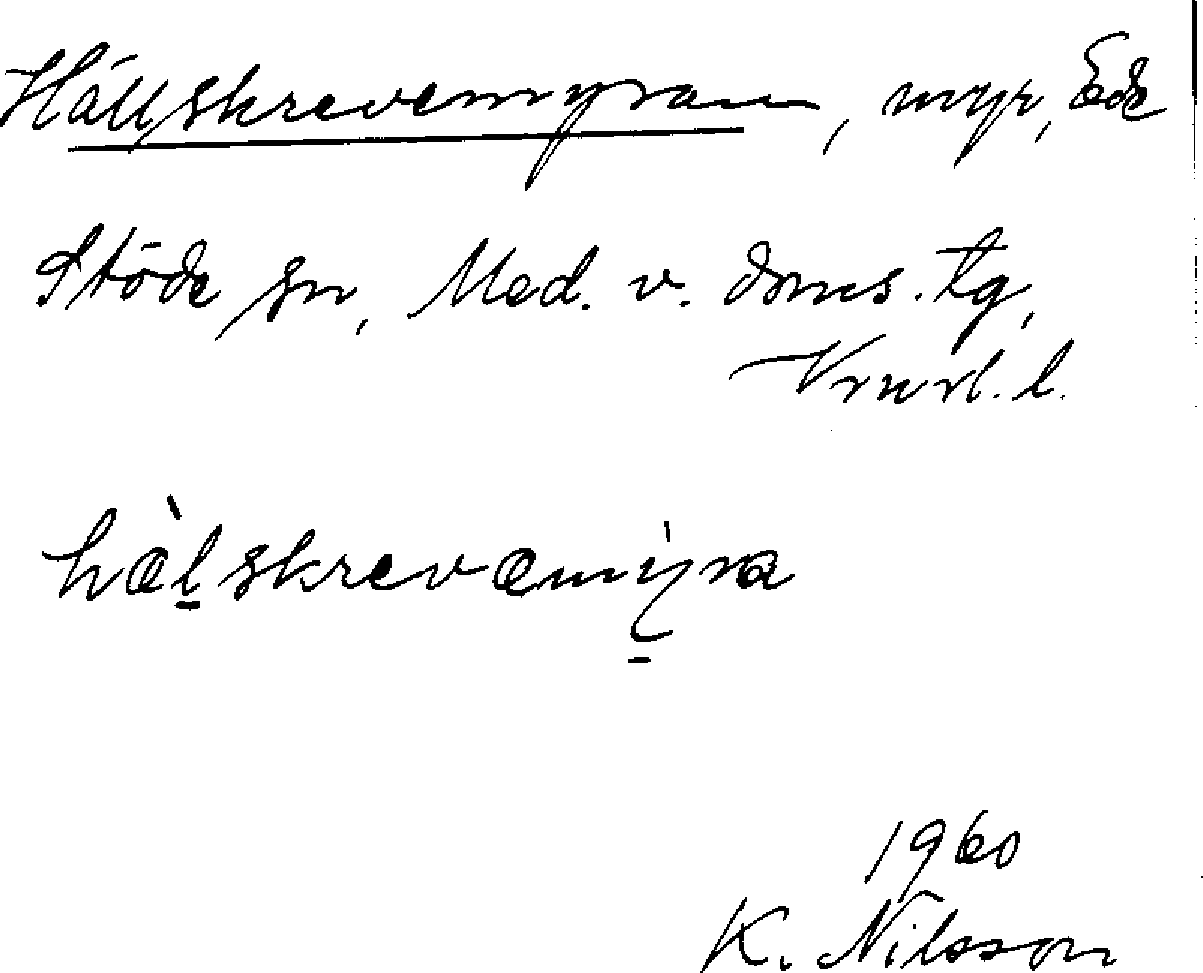 Hällskrevemyran, myr, Ede
Stöde sn, Med. v. doms. tg,
Vnrl. l.
hælskrevæmyra
1960
K. Nilsson